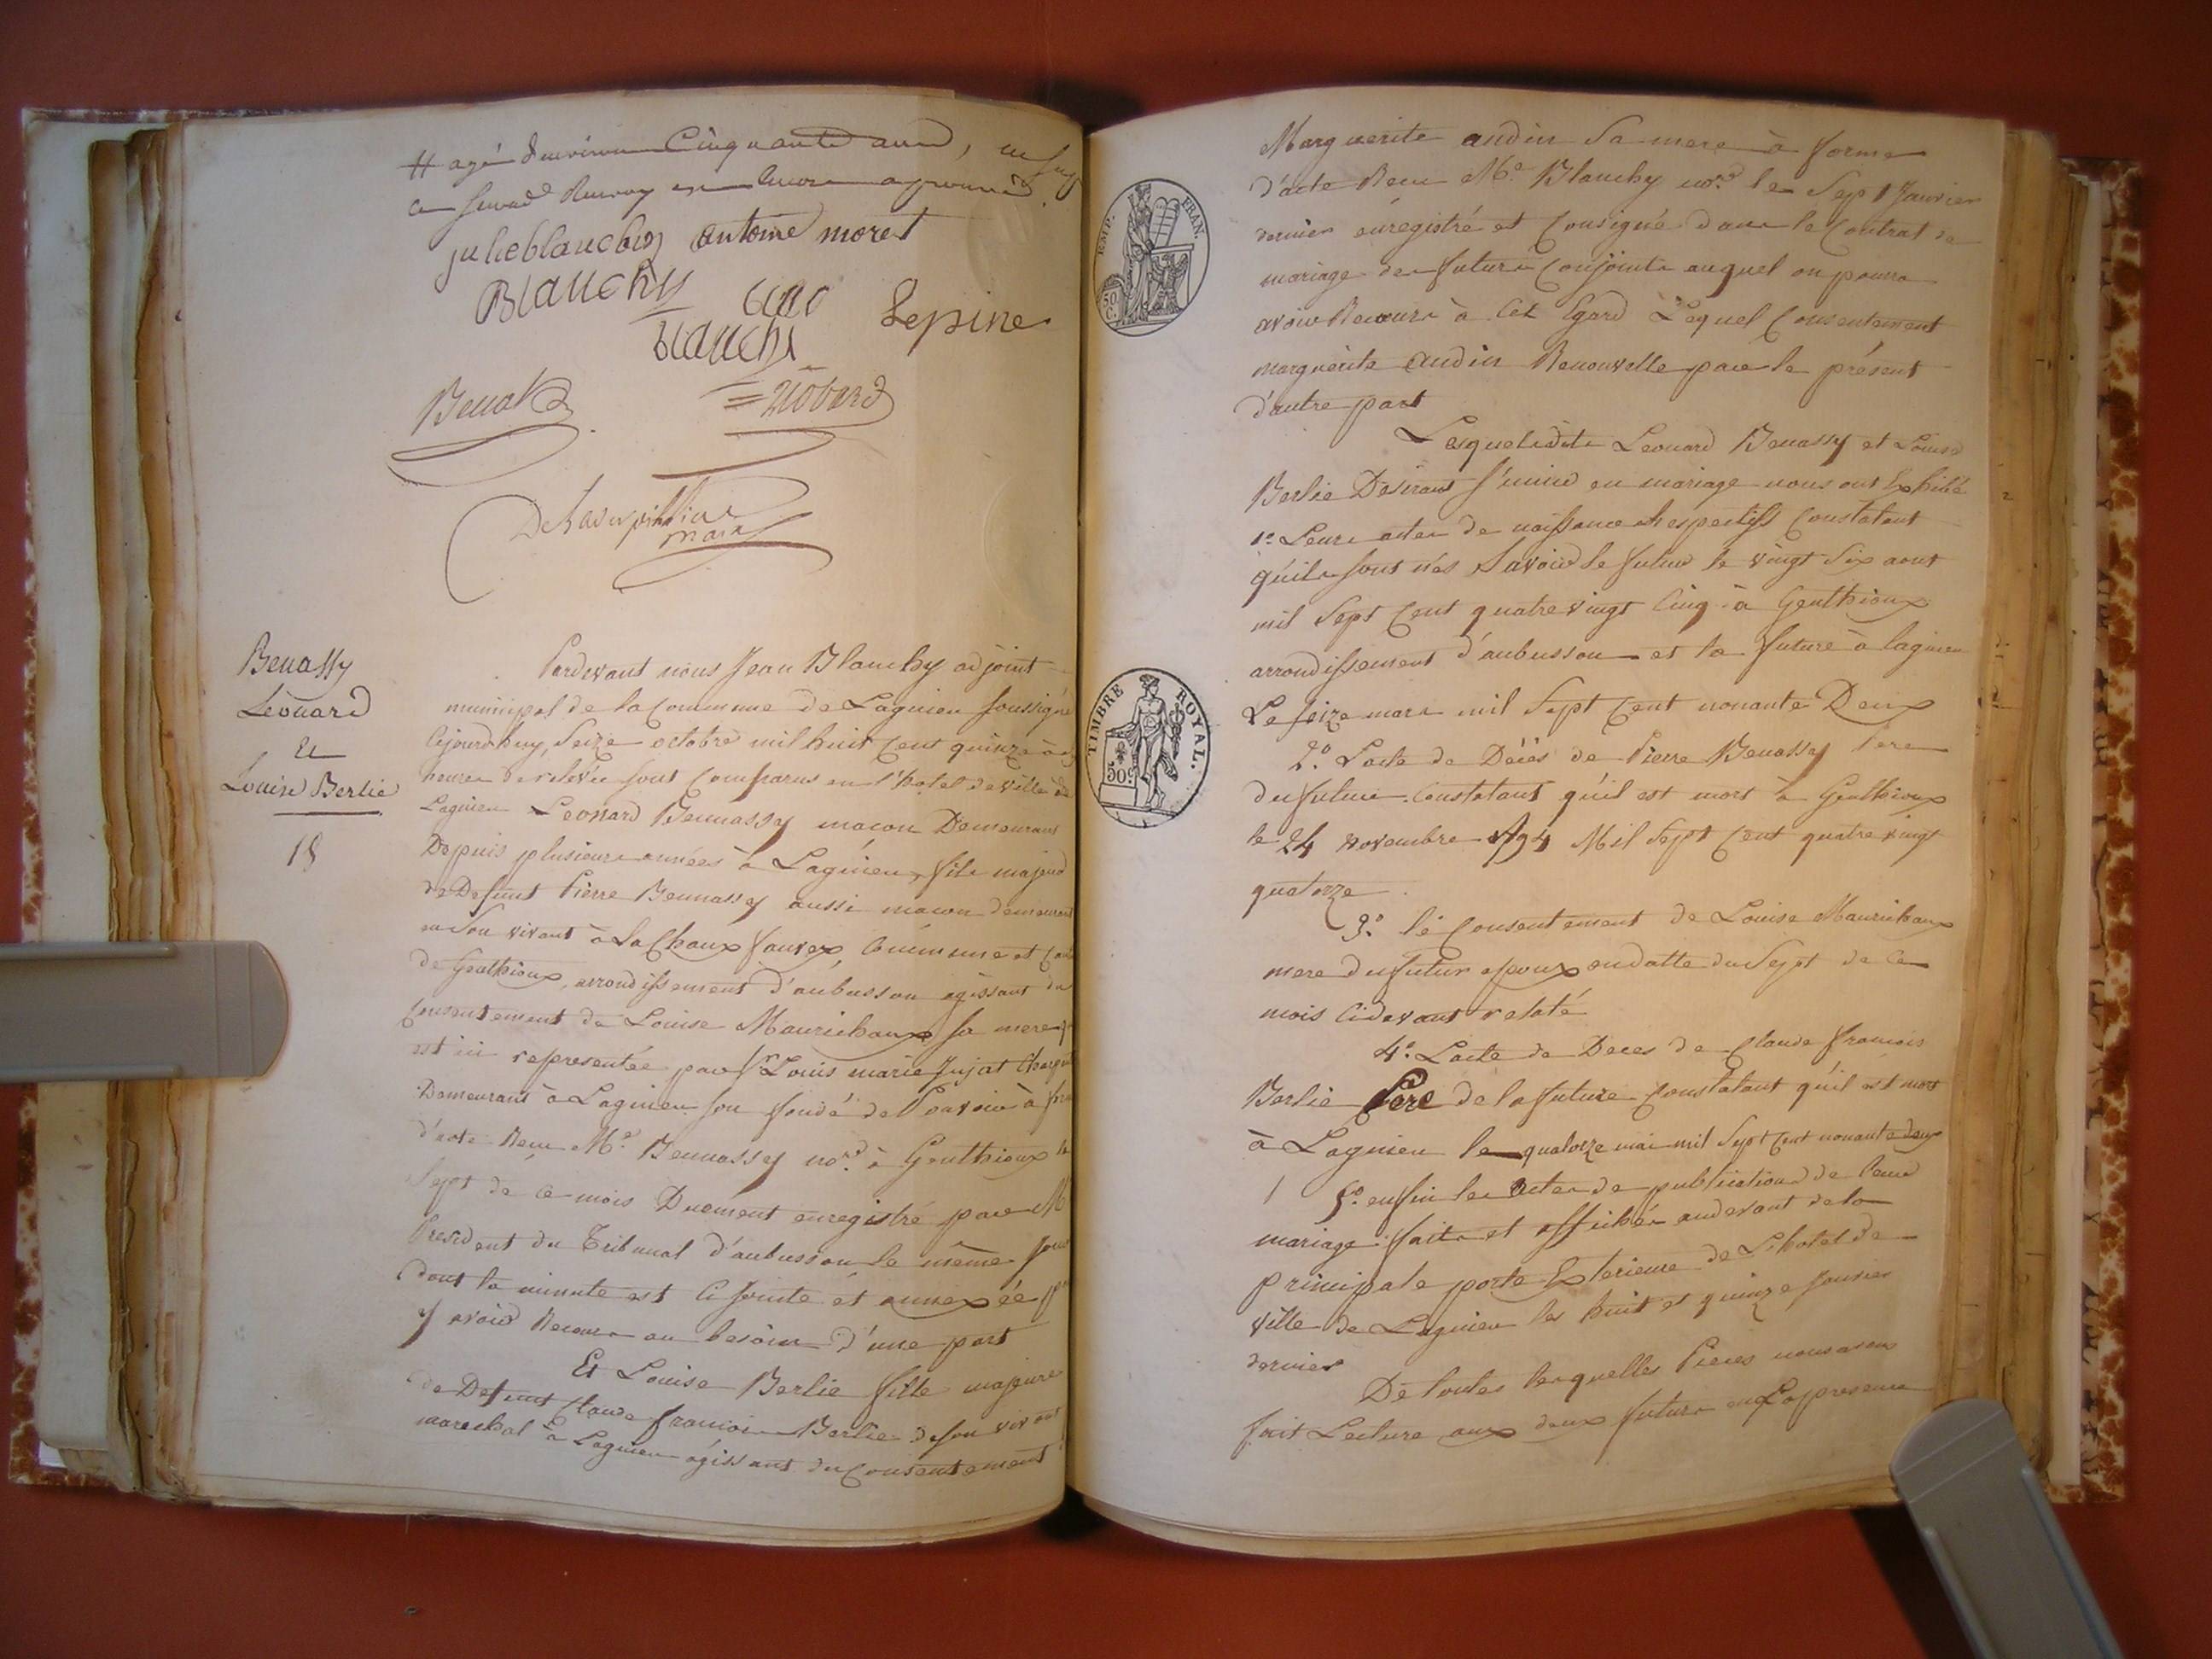 # agé d'environ Cinquante ans,
ce second Renvoy est encore approuvé
julieblanchin antoine moret
Blanchy
Lepine
blanchi
Benat
Nobard
maire
Benassy
Léonard
Et
Louise Berlie
18
Pardevant nous Jean Blanchy adjoint
municipal de la Commune de Lagnieu soussigné
Cejourd'huy, Seize octobre mil huit Cent quinze à
heures de relevée sont Comparus en l'hotel de ville de
Lagnieu Leonard Bennassy macon Demeurant
Depuis plusieurs années à Lagnieu, fils majeur
de Defunt Pierre Bennassy aussi macon demeurant
en Son vivant à La Chaux fauvex, Commune et
de Genthioux, arrondissement d'aubusson agissant du
Consentement de Louise Maurichaux sa mere
est ici representée par Sr Louis marie Jujat
Demeurant à Lagnieu son fondé de Pouvoir à
d'acte Recu Me Bennassy nore à Genthioux le
Sept de ce mois Duement enregistré par M
President du Tribunal d'aubusson le même jour
dont la minute est Ci Jointe et annexéé pr
y avoir Recours au besoin d'une part
Et Louise Berlie fille majeure
de Defunt Claude francois Berlie de son vivant
marechal à Lagnieu agissant du Consentement
EMP. FRAN.
50 C.
TIMBRE ROYAL.
50c
Marguerite andin Sa mere à forme
d'acte Recu Me Blanchy nore le Sept Janvier
dernier enregistré et Consigné dans le Contrat de
mariage des futurs Conjoints auquel on pourra
avoir Recours à Cet Egard Lequel Consentement
marguerite andin Renouvelle par le présent
d'autre part
Lesquels dits Leonard Benassy et Louise
Berlie Desirant s'unir en mariage nous ont Exhibé
1o Leurs actes de naissance respectifs Constatant
qu'ils sont nés Savoir le futur le vingt Six aout
mil Sept Cent quatre vingt Cinq à Genthioux
arrondissement d'aubusson et la future à lagnieu
Le seize mars mil Sept Cent nonante Deux
2o L'acte de Décès de Pierre Benassy Pere
du futur Constatant qu'il est mort à Genthioux
le 24 novembre 1794 Mil Sept Cent quatre vingt
quatorze.
3o le Consentement de Louise Maurichaux
mere du futur epoux en datte du Sept de Ce
mois Cidevant relaté
4o L'acte de Deces de Claude francois
Berlie Pere de la future Constatant qu'il est mort
à Lagnieu le quatorze mai mil Sept Cent nonante deux
5o enfin les Actes de publication de leur
mariage faits et affichés audevant de la
principale porte Exterieure de L'hotel de
ville de Lagnieu les huit et quinze Janvier
dernier
De toutes lesquelles Pieces nous avons
fait Lecture aux deux futurs en La presence